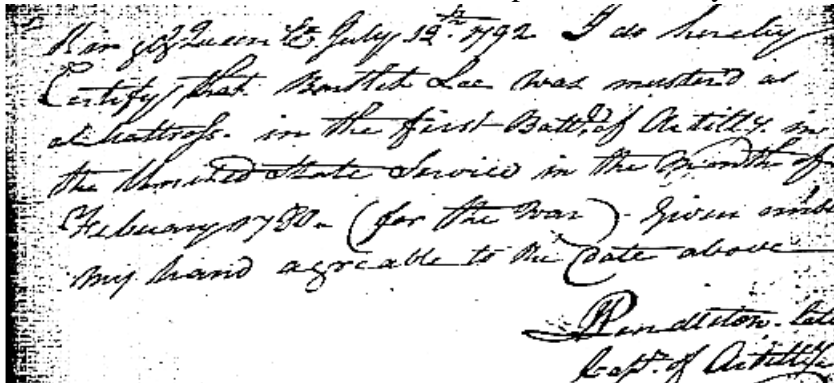 King & Queen Ct. July 12th 1792 I do hereby
Certify that Bartlet Lee was musterd as
a Mattross. in the first Battl. of Artilly. in
the Unnited State Service in the Month of
February 1780. (for the War) Given unde
my hand agreable to the date above
Pendleton. late
Capt. of Artillry